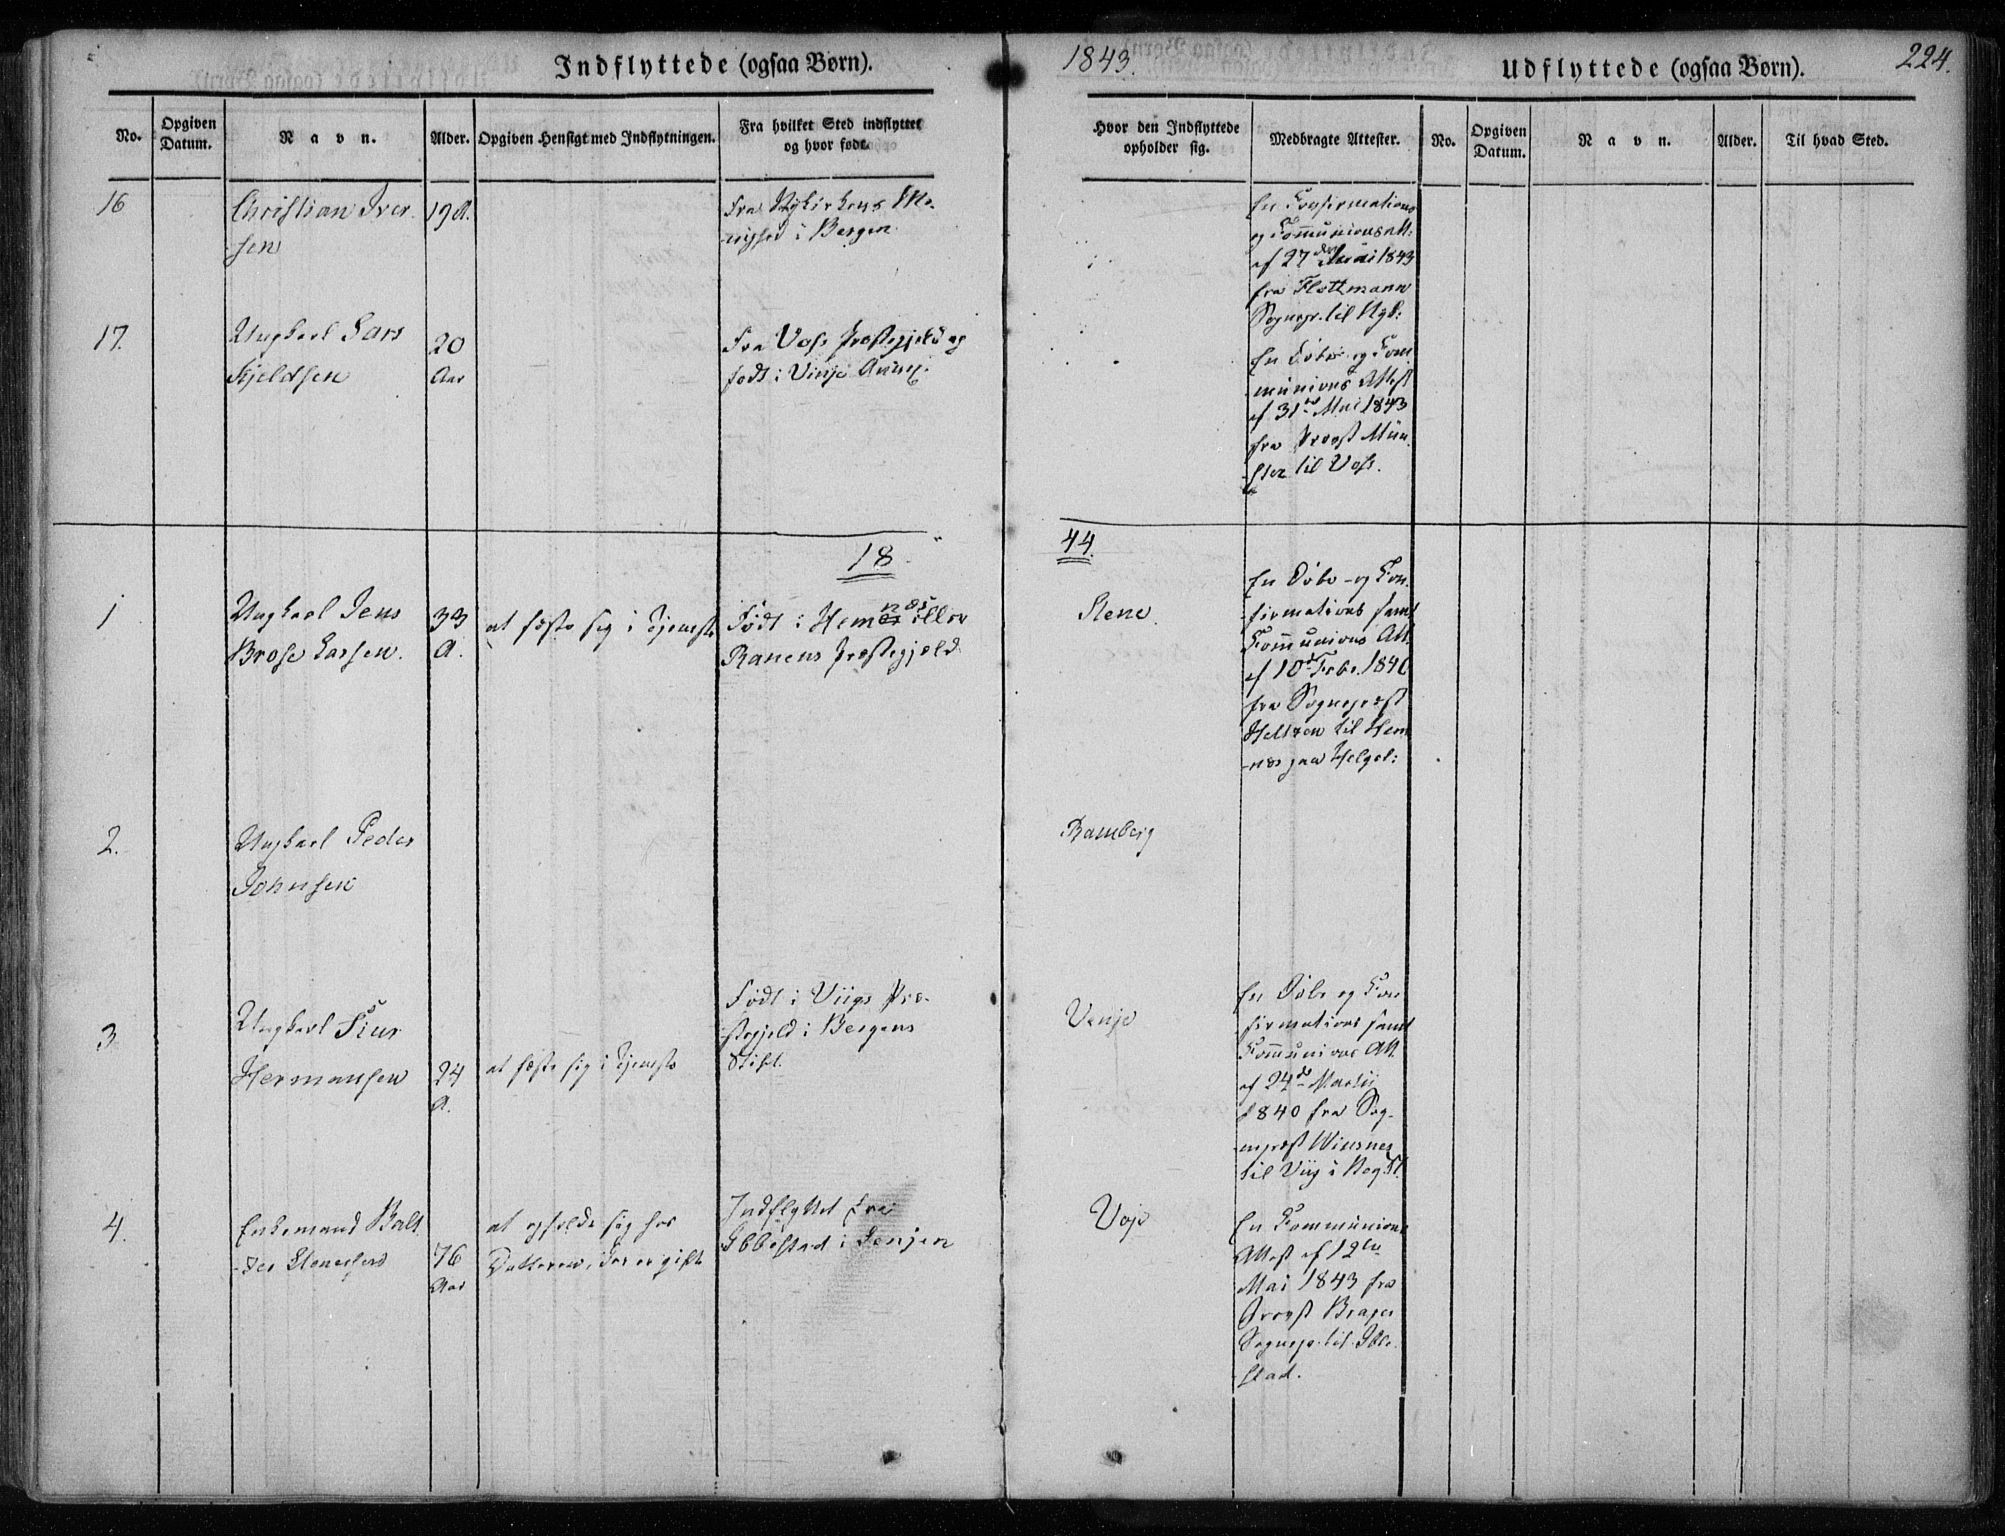 Indflyttede (ogsaa Børn).
1843.
Udflyttede (ogsaa Børn).
224.
No.
Opgiven Datum.
Navn.
Alder.
Opgiven Hensigt med Indflytningen.
Fra hvilket Sted indflyttet og hvor født.
Hvor den Indflyttede opholder sig.
Medbragte Attester.
No.
Opgiven Datum.
Navn.
Alder.
Til hvad Sted.
16
Christian Iver-
sen
19 A.
Fra Nykirkens Me-
nighed i Bergen
En Confirmations
og Communions Att:
af 27 Mai 1843
fra Flottmann
Sognepr. til Nyk:
17.
Ungkarl Lars
Kjeldsen
20
Aar
Fra Voss Præstegjeld og
født i Vinje
En Døbe- og Com-
munions Attest
af 31te Mai 1843
fra Provst Mün-
ster til Voss.
18
44.
1
Ungkarl Jens
Brose Larsen.
33
A.
at fæste sig i Tjeneste
Født i Hemnæs eller
Ranens Præstegjeld
Stene.
En Døbe- og Con-
firmations samt
Communions Att.
af 10de Febr. 1841
fra Sognepræst
Heltzen til Hem-
næs paa Helgel:
2.
Ungkarl Peder
Johnsen
Ramberg
3
Ungkarl Siur
Hermansen
24
A.
at fæste sig i Tjeneste
Født i Viigs Præ-
stegjeld i Bergens
Stift.
Venje
En Døbe og Con-
firmations samt
Communions Att.
af 24de Martii
1840 fra Sog-
nepræst Wiesner
til Viig i Berg. St.
4.
Enkemand Balt-
zer Stenersen
76
Aar
at opholde sig hos
Datteren, der er gift
Indflyttet fra
Ibbestad i Senjen
Voje
En Communions
Attest af 12te
Mai 1843 fra
Provst
Sognepr. til Ibbe-
stad.